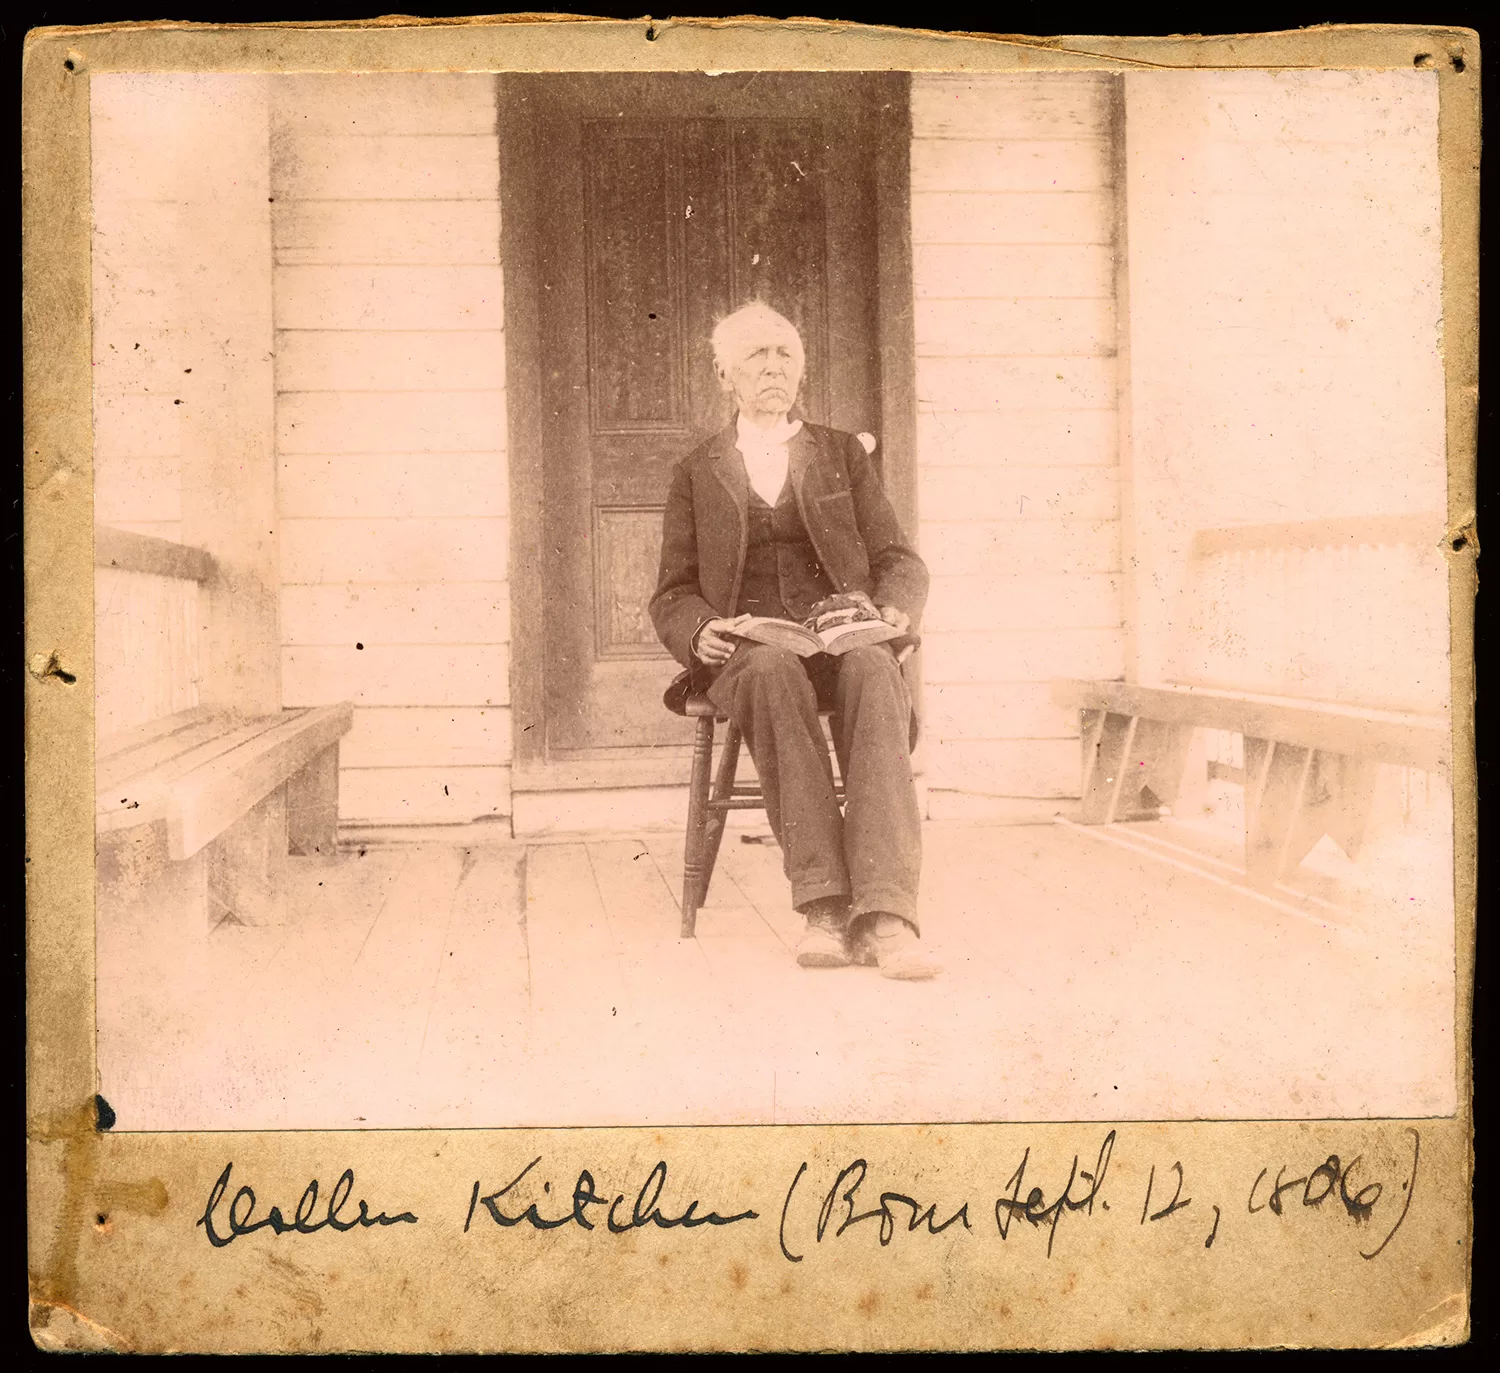 Kitchen (Born Sept. 12, 1806)